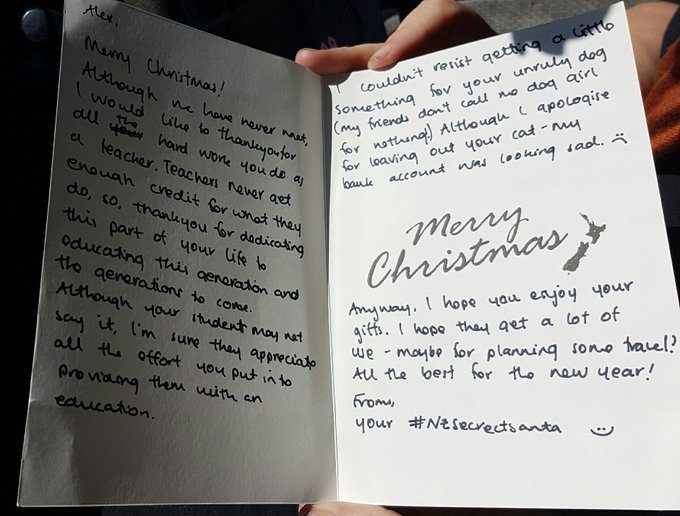 Alex,
Merry Christmas!
Although we have never meet,
I would like to thankyou for
all the hard work you do as
a teacher. Teachers never get
enough credit for what they
do, so, thankyou for dedicating
this part of your life to
educating this generation and
the generations to come.
Although your student may not
say it, I'm sure they appreciate
all the effort you put in to
providing them with an
education.
I couldn't resist getting a little
something for your unruly dog
(my friends don't call me dog girl
for nothing!) Although I apologise
for leaving out your cat - my
bank account was looking sad. :(
Merry
Christmas
Anyway, I hope you enjoy your
gifts. I hope they get a lot of
use - maybe for planning some travel?
All the best for the new year!
From,
your #Nzsecrectsanta :)